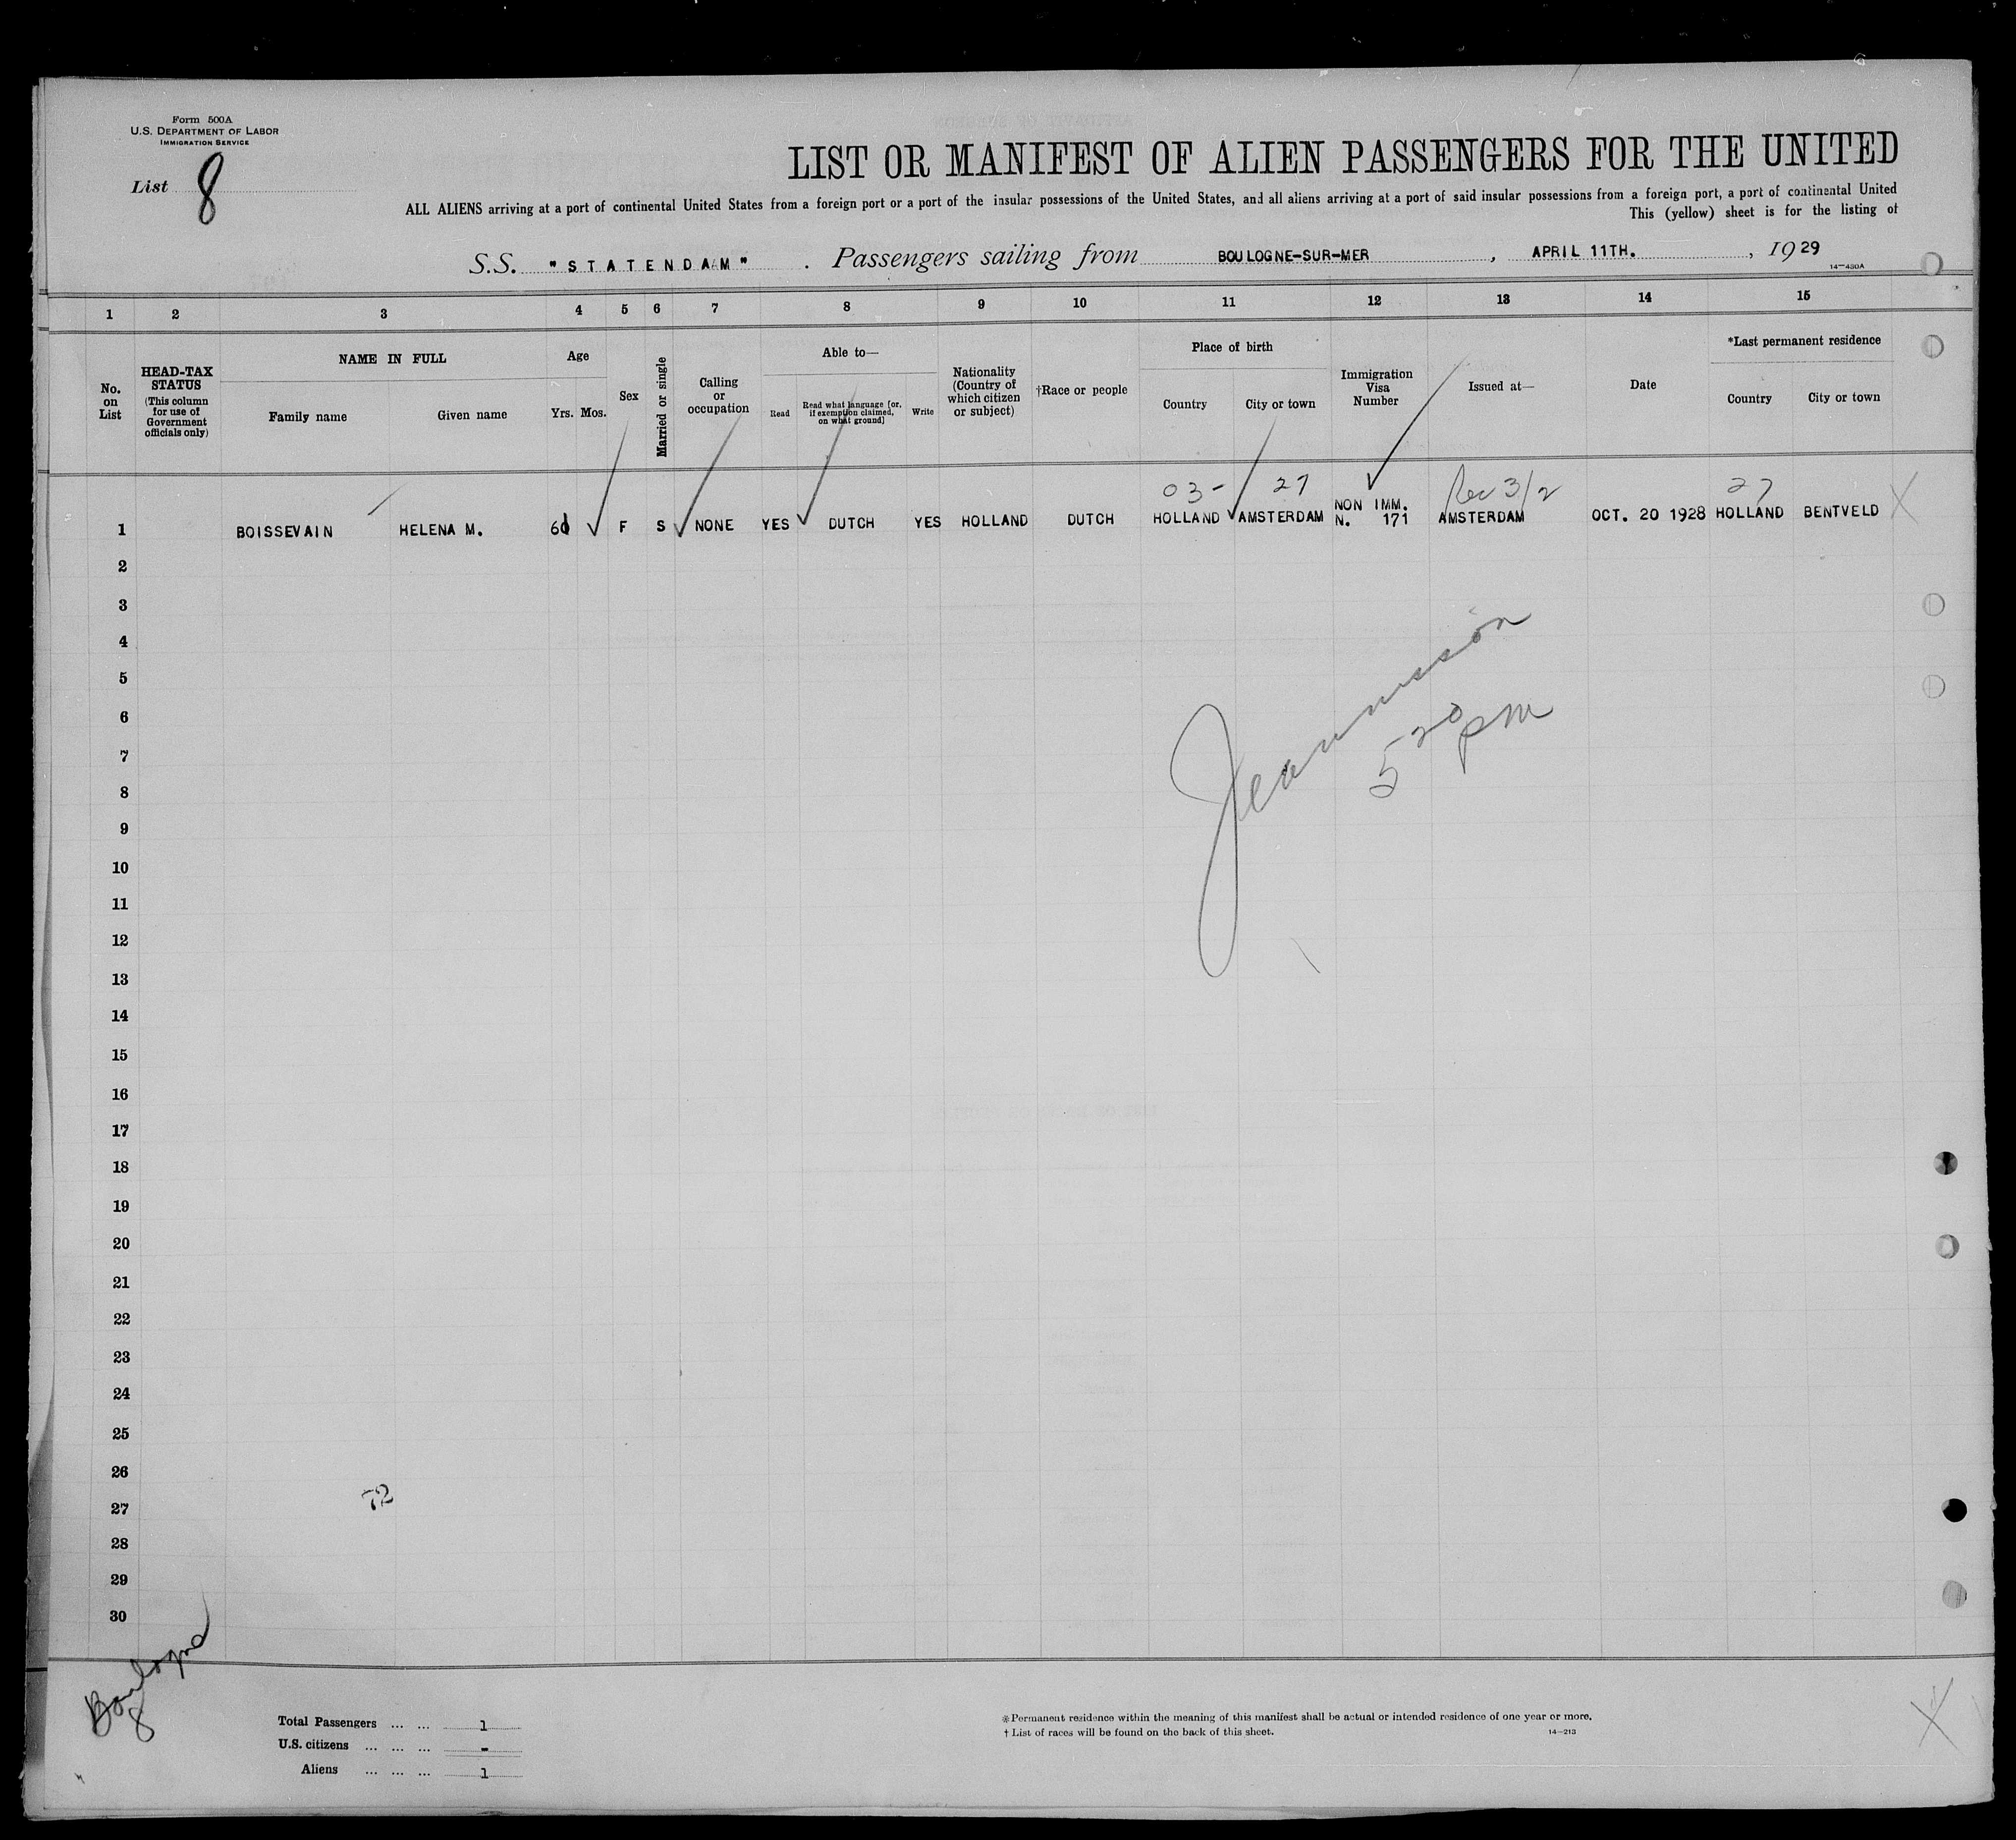 Form 500A
U.S. DEPARTMENT OF LABOR
IMMIGRATION SERVICE
List 8
LIST OR MANIFEST OF ALIEN PASSENGERS FOR THE UNITED
ALL ALIENS arriving at a port of continental United States from a foreign port or a port of the insular possessions of the United States, and all aliens arriving at a port of said insular possessions from a foreign port, a port of continental United
This (yellow) sheet is for the listing of
S.S. "STATENDAM". Passengers sailing from BOULOGNE-SUR-MER, APRIL 11TH., 1929
14-430A
1 2 3 4 5 6 7 8 9 10 11 12 13 14 15
No. on List
HEAD-TAX STATUS (This column for use of Government officials only)
NAME IN FULL
Family name
Given name
Age
Yrs. Mos.
Sex
Married or single
Calling or occupation
Able to—
Read
Read what language [or, if exemption claimed, on what ground]
Write
Nationality (Country of which citizen or subject)
†Race or people
Place of birth
Country
City or town
Immigration Visa Number
Issued at—
Date
*Last permanent residence
Country
City or town
03- 27 3/2 27
1 BOISSEVAIN HELENA M. F S NONE YES DUTCH YES HOLLAND DUTCH HOLLAND AMSTERDAM NON IMM. N. 171 AMSTERDAM OCT. 20 1928 HOLLAND BENTVELD
2
3
4
5
6
7
8
9
10
11
12
13
14
15
16
17
18
19
20
21
22
23
24
25
26
27
28
29
30
5 20 pm
72
Boulogne
8
Total Passengers ... ... 1
U.S. citizens ... ... ... -
Aliens ... ... ... 1
*Permanent residence within the meaning of this manifest shall be actual or intended residence of one year or more.
† List of races will be found on the back of this sheet.
14-213